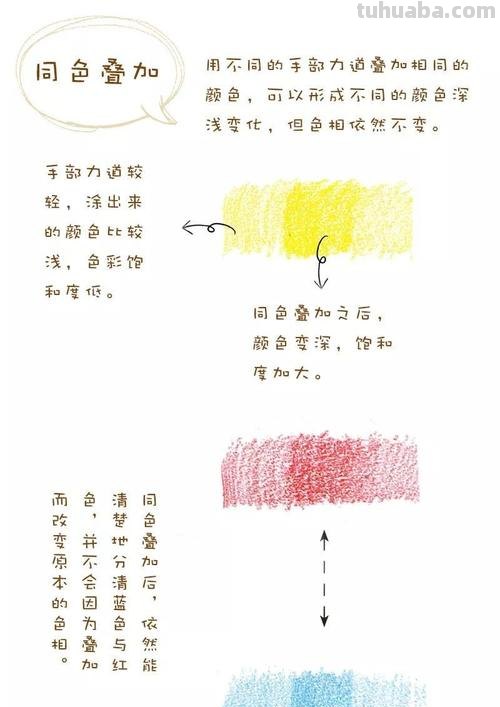 tuhuaba.com
同色叠加
用不同的手部力道叠加相同的
颜色，可以形成不同的颜色深
浅变化，但色相依然不变。
手部力道较
轻，涂出来
的颜色比较
浅，色彩饱
和度低。
同色叠加之后，
颜色变深，饱和
度加大。
同色叠加后，依然能
清楚地分清蓝色与红
色，并不会因为叠加
而改变原本的色相。